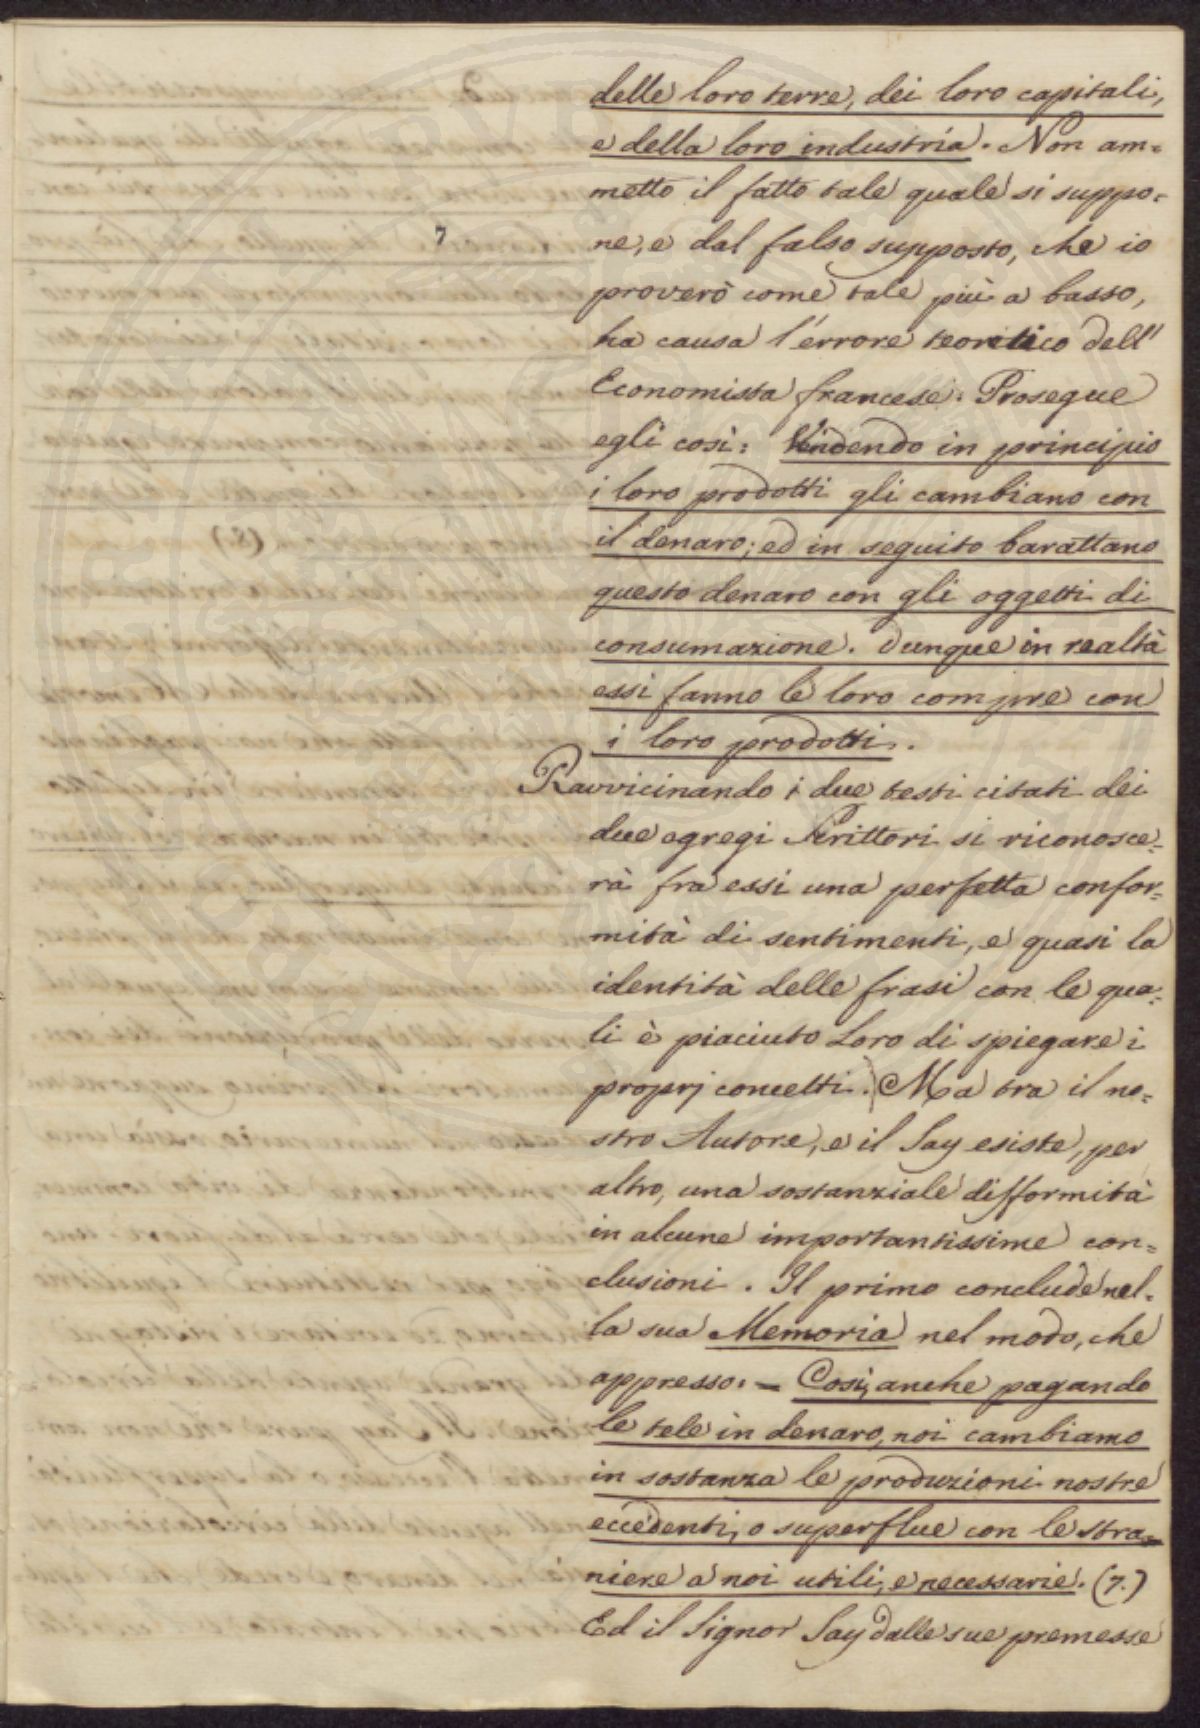 delle loro terre, dei loro capitali,
e della loro industria. Non am=
metto il fatto tale quale si suppo=
7
ne, e dal falso supposto, che io
proverò come tale più a basso,
ha causa l'errore teoretico dell'
Economista francese. Prosegue
egli così: Vendendo in principio
i loro prodotti gli cambiano con
il denaro; ed in seguito barattano
questo denaro con gli oggetti di
consumazione. Dunque in realtà
essi fanno le loro compre con
i loro prodotti.
Ravvicinando i due testi citati dei
due egregi Scrittori si riconosce=
rà fra essi una perfetta confor=
mità di sentimenti, e quasi la
identità delle frasi con le qua=
li è piaciuto Loro di spiegare i
proprj concetti.) Ma tra il no=
stro Autore, e il Say esiste, per
altro, una sostanziale difformità
in alcune importantissime con=
clusioni. Il primo conclude nel=
la sua Memoria nel modo, che
appresso: = Così, anche pagando
le tele in denaro, noi cambiamo
in sostanza le produzioni nostre
eccedenti, o superflue con le stra=
niere a noi utili, e necessarie. (7.)
Ed il Signor Say dalle sue premesse